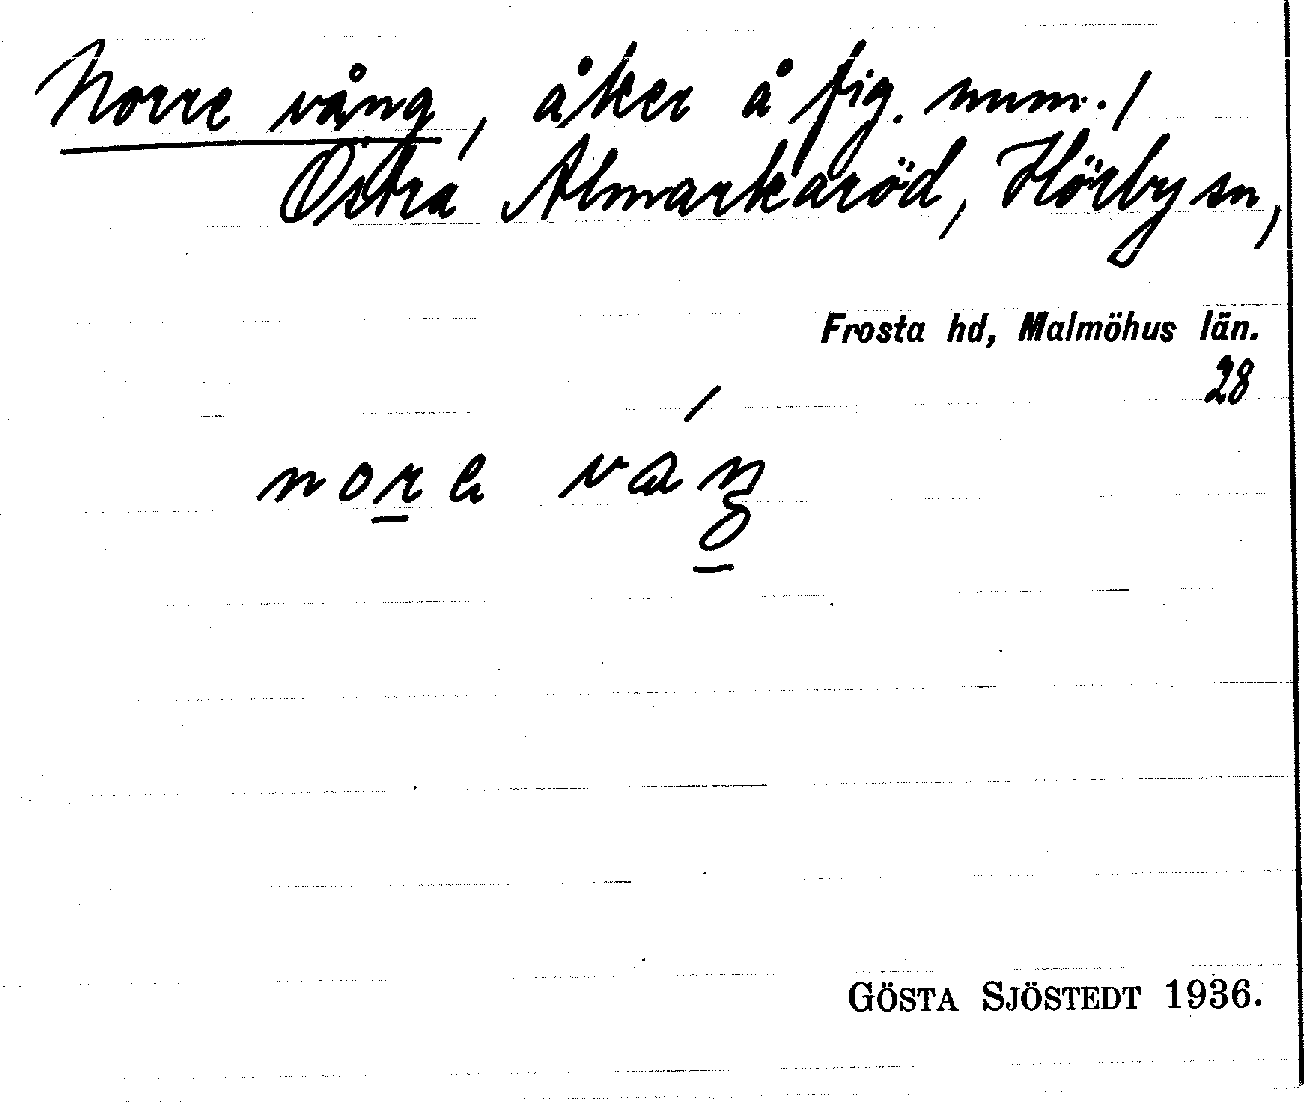 Norre vång, åker å fig. num. 1
Östra Almarkaröd, Hörby sn,
Frosta hd, Malmöhus län.
28
GÖSTA SJÖSTEDT 1936.